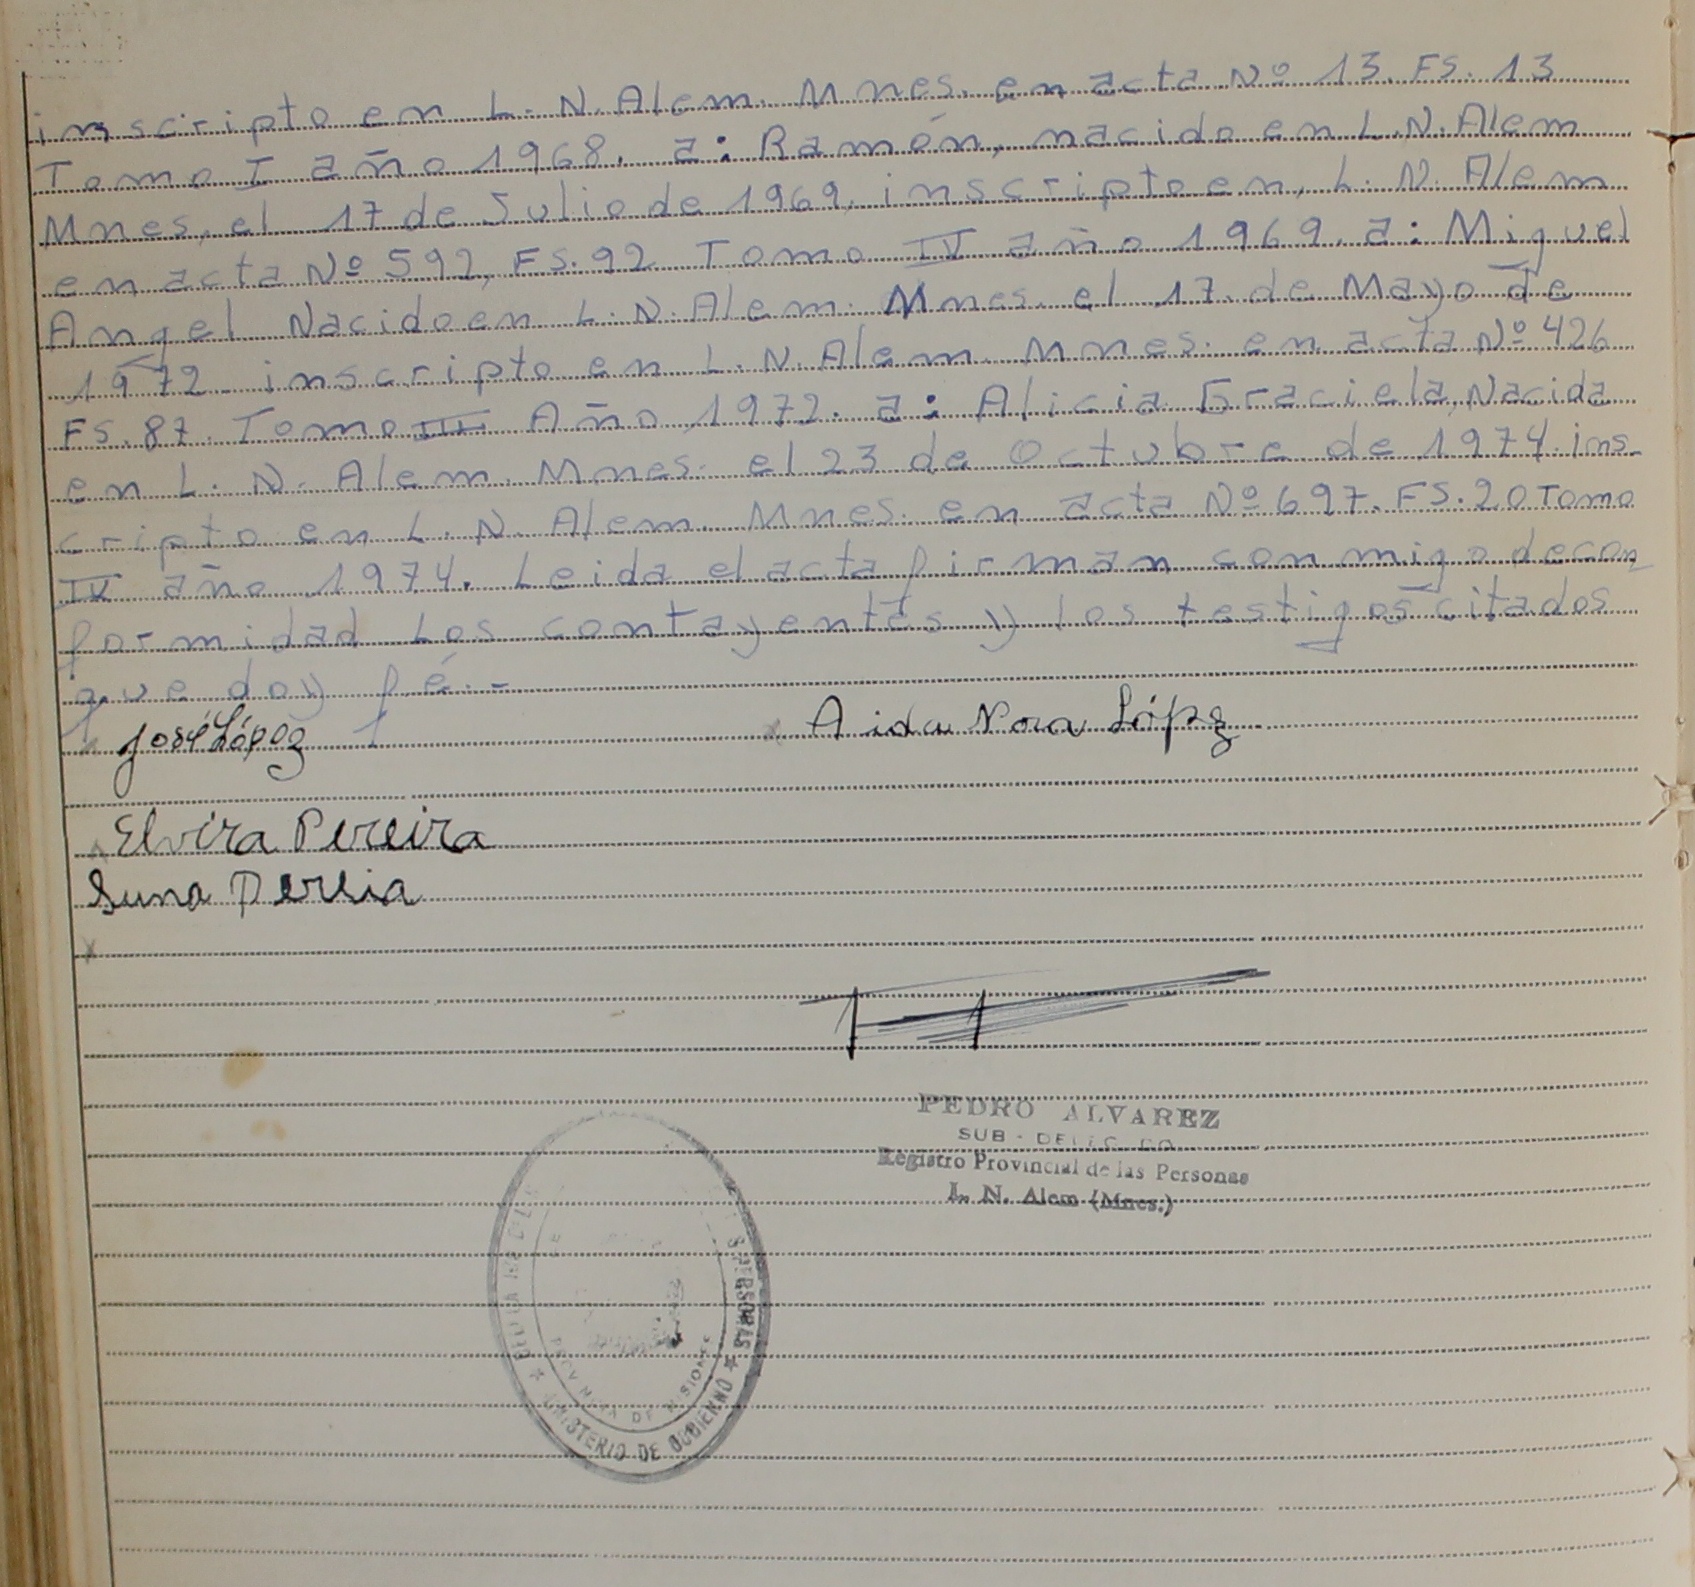 inscripto en L. N. Alem. Mnes. en acta Nº 13. FS. 13
Tomo I año 1968. a: Ramón, nacido en L.N. Alem
Mnes, el 17 de Julio de 1969, inscripto en, L. N. Alem
en acta Nº 592, FS. 92 Tomo IV año 1969. a: Miguel
Angel Nacido en L. N. Alem. Mnes. el 17. de Mayo de
1972 inscripto en L. N. Alem. Mnes. en acta Nº 426
FS. 87. Tomo III Año 1972. a: Alicia Graciela, Nacida
en L. N. Alem. Mnes. el 23 de Octubre de 1974. ins-
cripto en L. N. Alem. Mnes. en acta Nº 697. FS. 20 Tomo
IV año 1974. Leida el acta firman conmigo de con-
formidad Los contayentes y los testigos citados
que doy fé.-
José López Aida Nora López
Elvira Pereira
Pereia
PEDRO ALVAREZ
SUB-
Registro Provincial de las Personas
L. N. Alem (Mnes.)
PERSONAS
MINISTERIO DE GOBIERNO
PROVINCIA DE MISIONES